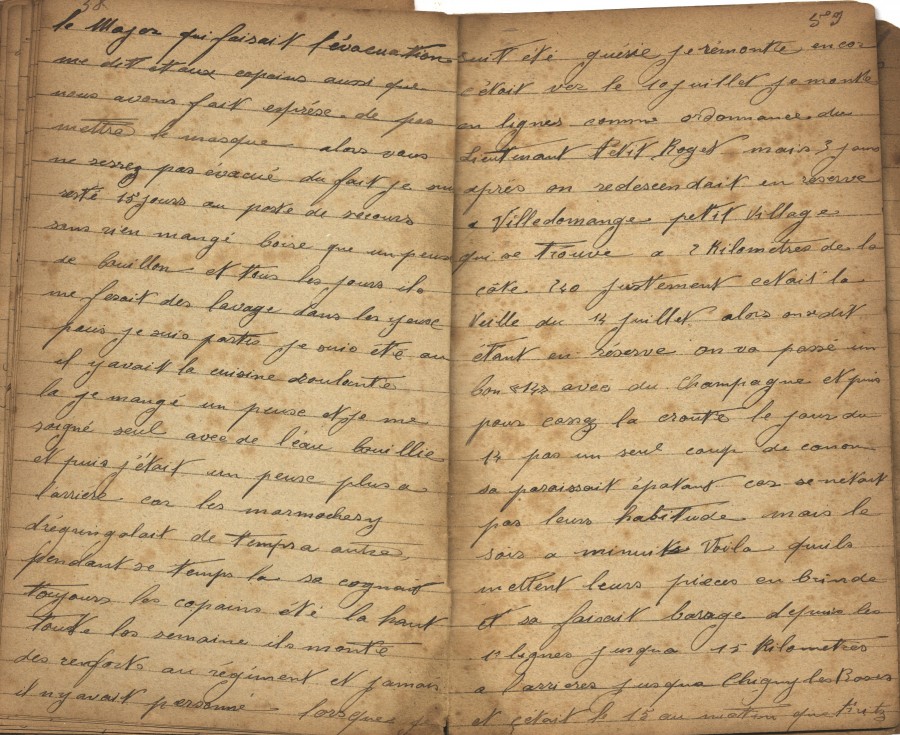 58
le Major qui faisait l'évacuation
me dit et aux copains aussi que
nous avons fait exprése de pas
mettre le masque alors vous
ne serrez pas évacué du fait je suis
resté 15 jours au poste de secours
sans rien mangé boire que un peux
de bouillon et tous les jours ils
me fesait des lavage dans les yeux
puis je suis partis je suis été au
il y avait la cuisine roulante
la je mangé un peux et je me
soigné seul avec de l'eau bouillie
et puis j'était un peux plus a
l'arriere car les marmochery
dréguingolait de temps a autre,
pendant se temps la sa cognait
toujours les copains été la haut
toute les semaine ils monté
des renforts au régiment et jamais
il n'y avait personne lorsque je
509
suit été guérie je remonte encor
c'était ver le 10 juillet je monte
en lignes comme ordonnance du
Lieutenant Petit Roget mais 3 jours
après on redescendait en réserve
a Villedomange petit village
qui se trouve a 2 Kilometres de la
côte 240 justement cetait la
Veille du 14 juillet alors on se dit
étant en réserve on va passé un
bon "14" avec du Champagne et puis
pour cassez la croute le jour du
14 pas un seul coup de canon
sa paraissait épatant car se n'était
pas leurs habitude mais le
soir a minuit Voila qu'ils
mettent leurs pieces en brinde
et sa faisait barage depuis les
1e lignes jusqua 15 Kilometres
a l'arrieres jusqua Chigny les Roses
et c'était le 15 au matin que